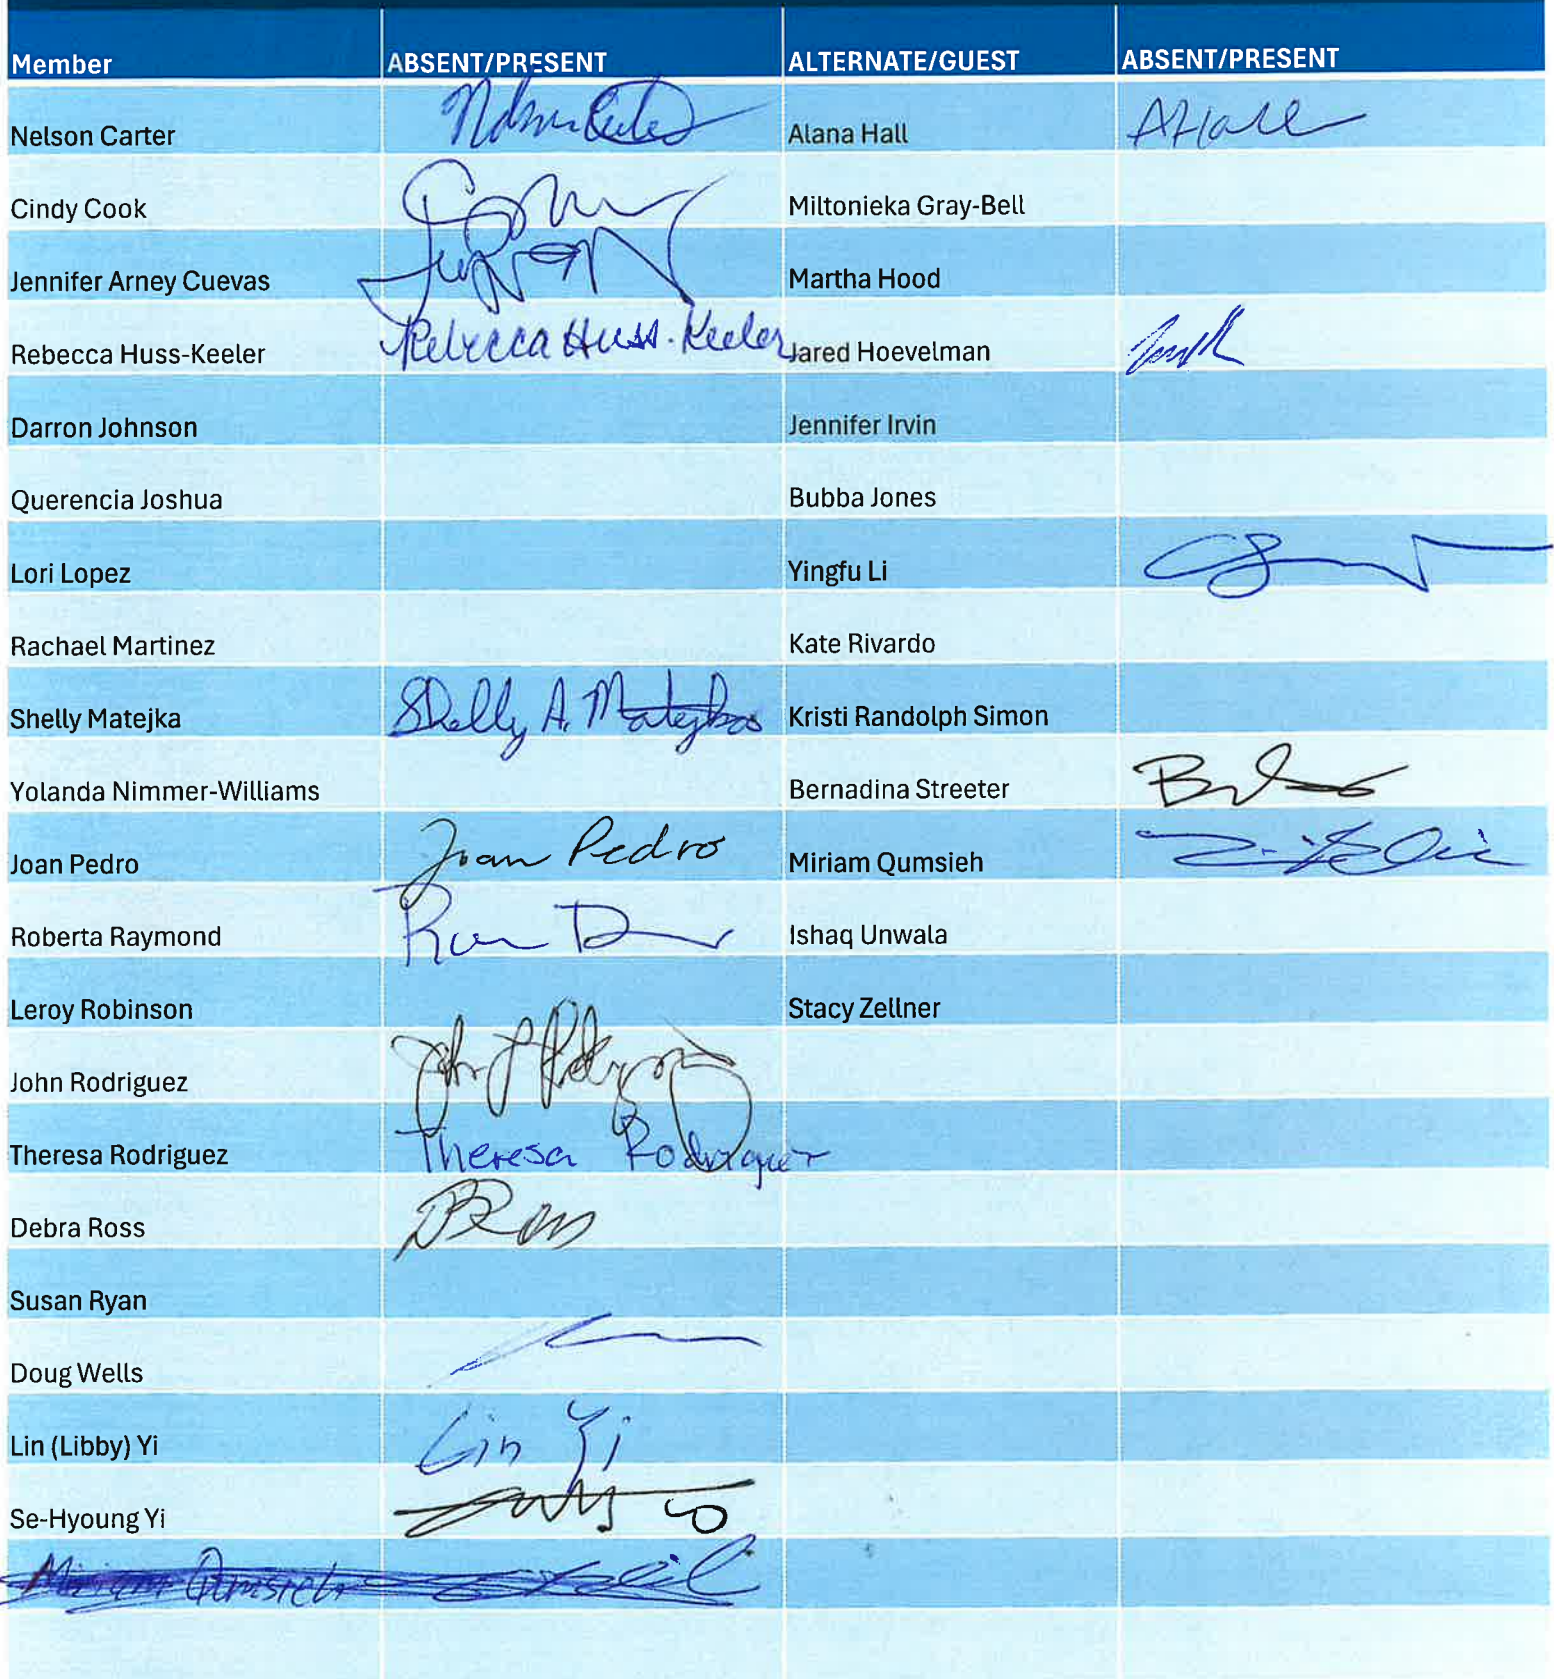 Member ABSENT/PRESENT ALTERNATE/GUEST ABSENT/PRESENT
Nelson Carter Nelson Carter Alana Hall AHall
Cindy Cook Miltonieka Gray-Bell
Jennifer Arney Cuevas Martha Hood
Rebecca Huss-Keeler Rebecca Huss-Keeler Jared Hoevelman
Darron Johnson Jennifer Irvin
Querencia Joshua Bubba Jones
Lori Lopez Yingfu Li
Rachael Martinez Kate Rivardo
Shelly Matejka Shelly A. Matejka Kristi Randolph Simon
Yolanda Nimmer-Williams Bernadina Streeter
Joan Pedro Joan Pedro Miriam Qumsieh
Roberta Raymond Ishaq Unwala
Leroy Robinson Stacy Zellner
John Rodriguez
Theresa Rodriguez Theresa Rodriguez
Debra Ross DRoss
Susan Ryan
Doug Wells
Lin (Libby) Yi Lin Yi
Se-Hyoung Yi
Miriam Qumsieh